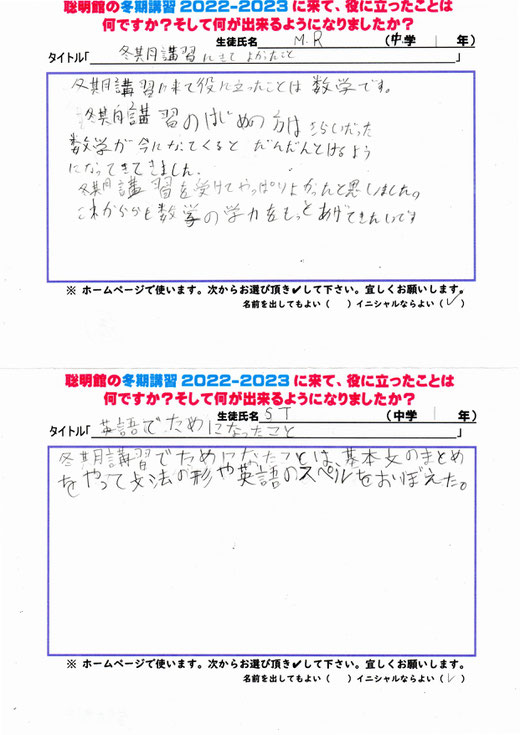 聡明館の冬期講習2022-2023に来て、役に立ったことは
何ですか？そして何が出来るようになりましたか？
生徒氏名 M.R (中学 1 年)
タイトル「冬期講習にきてよかったこと」
冬期講習に来て役に立ったことは数学です。
冬期講習のはじめの方はきらいだった
数学が今になってくると だんだんとけるよう
になってきてきました。
冬期講習を受けてやっぱりよかったと思しました。
これからも数学の学力をもっとあげてきたいです
※ ホームページで使います。次からお選び頂き✔して下さい。宜しくお願いします。
名前を出してもよい（ ）イニシャルならよい（✓）
聡明館の冬期講習2022-2023に来て、役に立ったことは
何ですか？そして何が出来るようになりましたか？
生徒氏名 S T (中学 1 年)
タイトル「英語でためになったこと」
冬期講習でためになったことは、基本文のまとめ
をやって文法の形や英語のスペルをおぼえた。
※ ホームページで使います。次からお選び頂き✔して下さい。宜しくお願いします。
名前を出してもよい（ ）イニシャルならよい（✓）